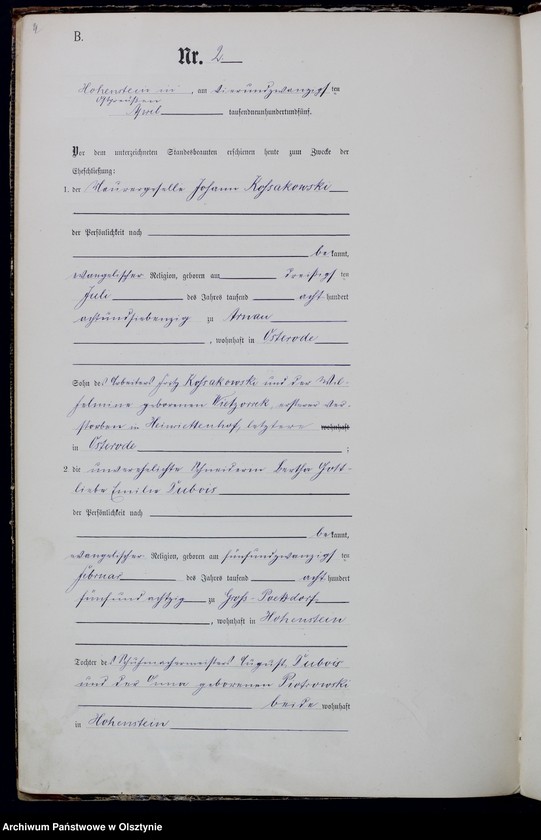 B.
Nr. 2
Hohenstein in, am vierundzwanzigsten
Ostpreußen
April tausendneunhundertundfünf.
Vor dem unterzeichneten Standesbeamten erschienen heute zum Zwecke der
Eheschließung:
1. der Maurergeselle Johann Kossakowski
der Persönlichkeit nach
bekannt,
evangelischer Religion, geboren am dreißigsten
Juli des Jahres tausend acht hundert
achtundsiebenzig zu Arnau
, wohnhaft in Osterode
Sohn des Arbeiters Fritz Kossakowski und der Wil-
helmine geborenen, ersterer ver-
storben in Heinriettenhof, letztere wohnhaft
in Osterode ;
2. die unverehelichte Schneiderin Bertha Gott-
liebe Emilie Dubois
der Persönlichkeit nach
bekannt,
evangelischer Religion, geboren am fünfundzwanzigsten
Februar des Jahres tausend acht hundert
fünfundachtzig zu Groß-
, wohnhaft in Hohenstein
Tochter des Schuhmachermeisters August Dubois
und der Anna geborenen Piotrowski
beide wohnhaft
in Hohenstein
Archiwum Państwowe w Olsztynie